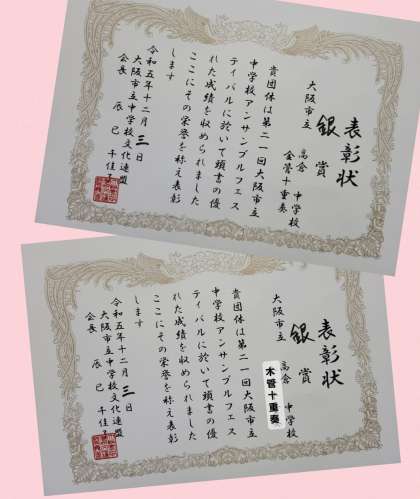 表彰状
銀賞
大阪市立
高倉中学校
金管十重奏
貴団体は第二一回大阪市立
中学校アンサンブルフェス
ティバルに於いて頭書の優
れた成績を収められました
ここにその栄誉を称え表彰
します
令和五年十二月三日
大阪市立中学校文化連盟
会長 辰巳 千佳
表彰状
銀賞
大阪市立
高倉 中学校
木管十重奏
貴団体は第二一回大阪市立
中学校アンサンブルフェス
ティバルに於いて頭書の優
れた成績を収められました
ここにその栄誉を称え表彰
します
令和五年十二月三日
大阪市立中学校文化連盟
会長 辰巳 千佳